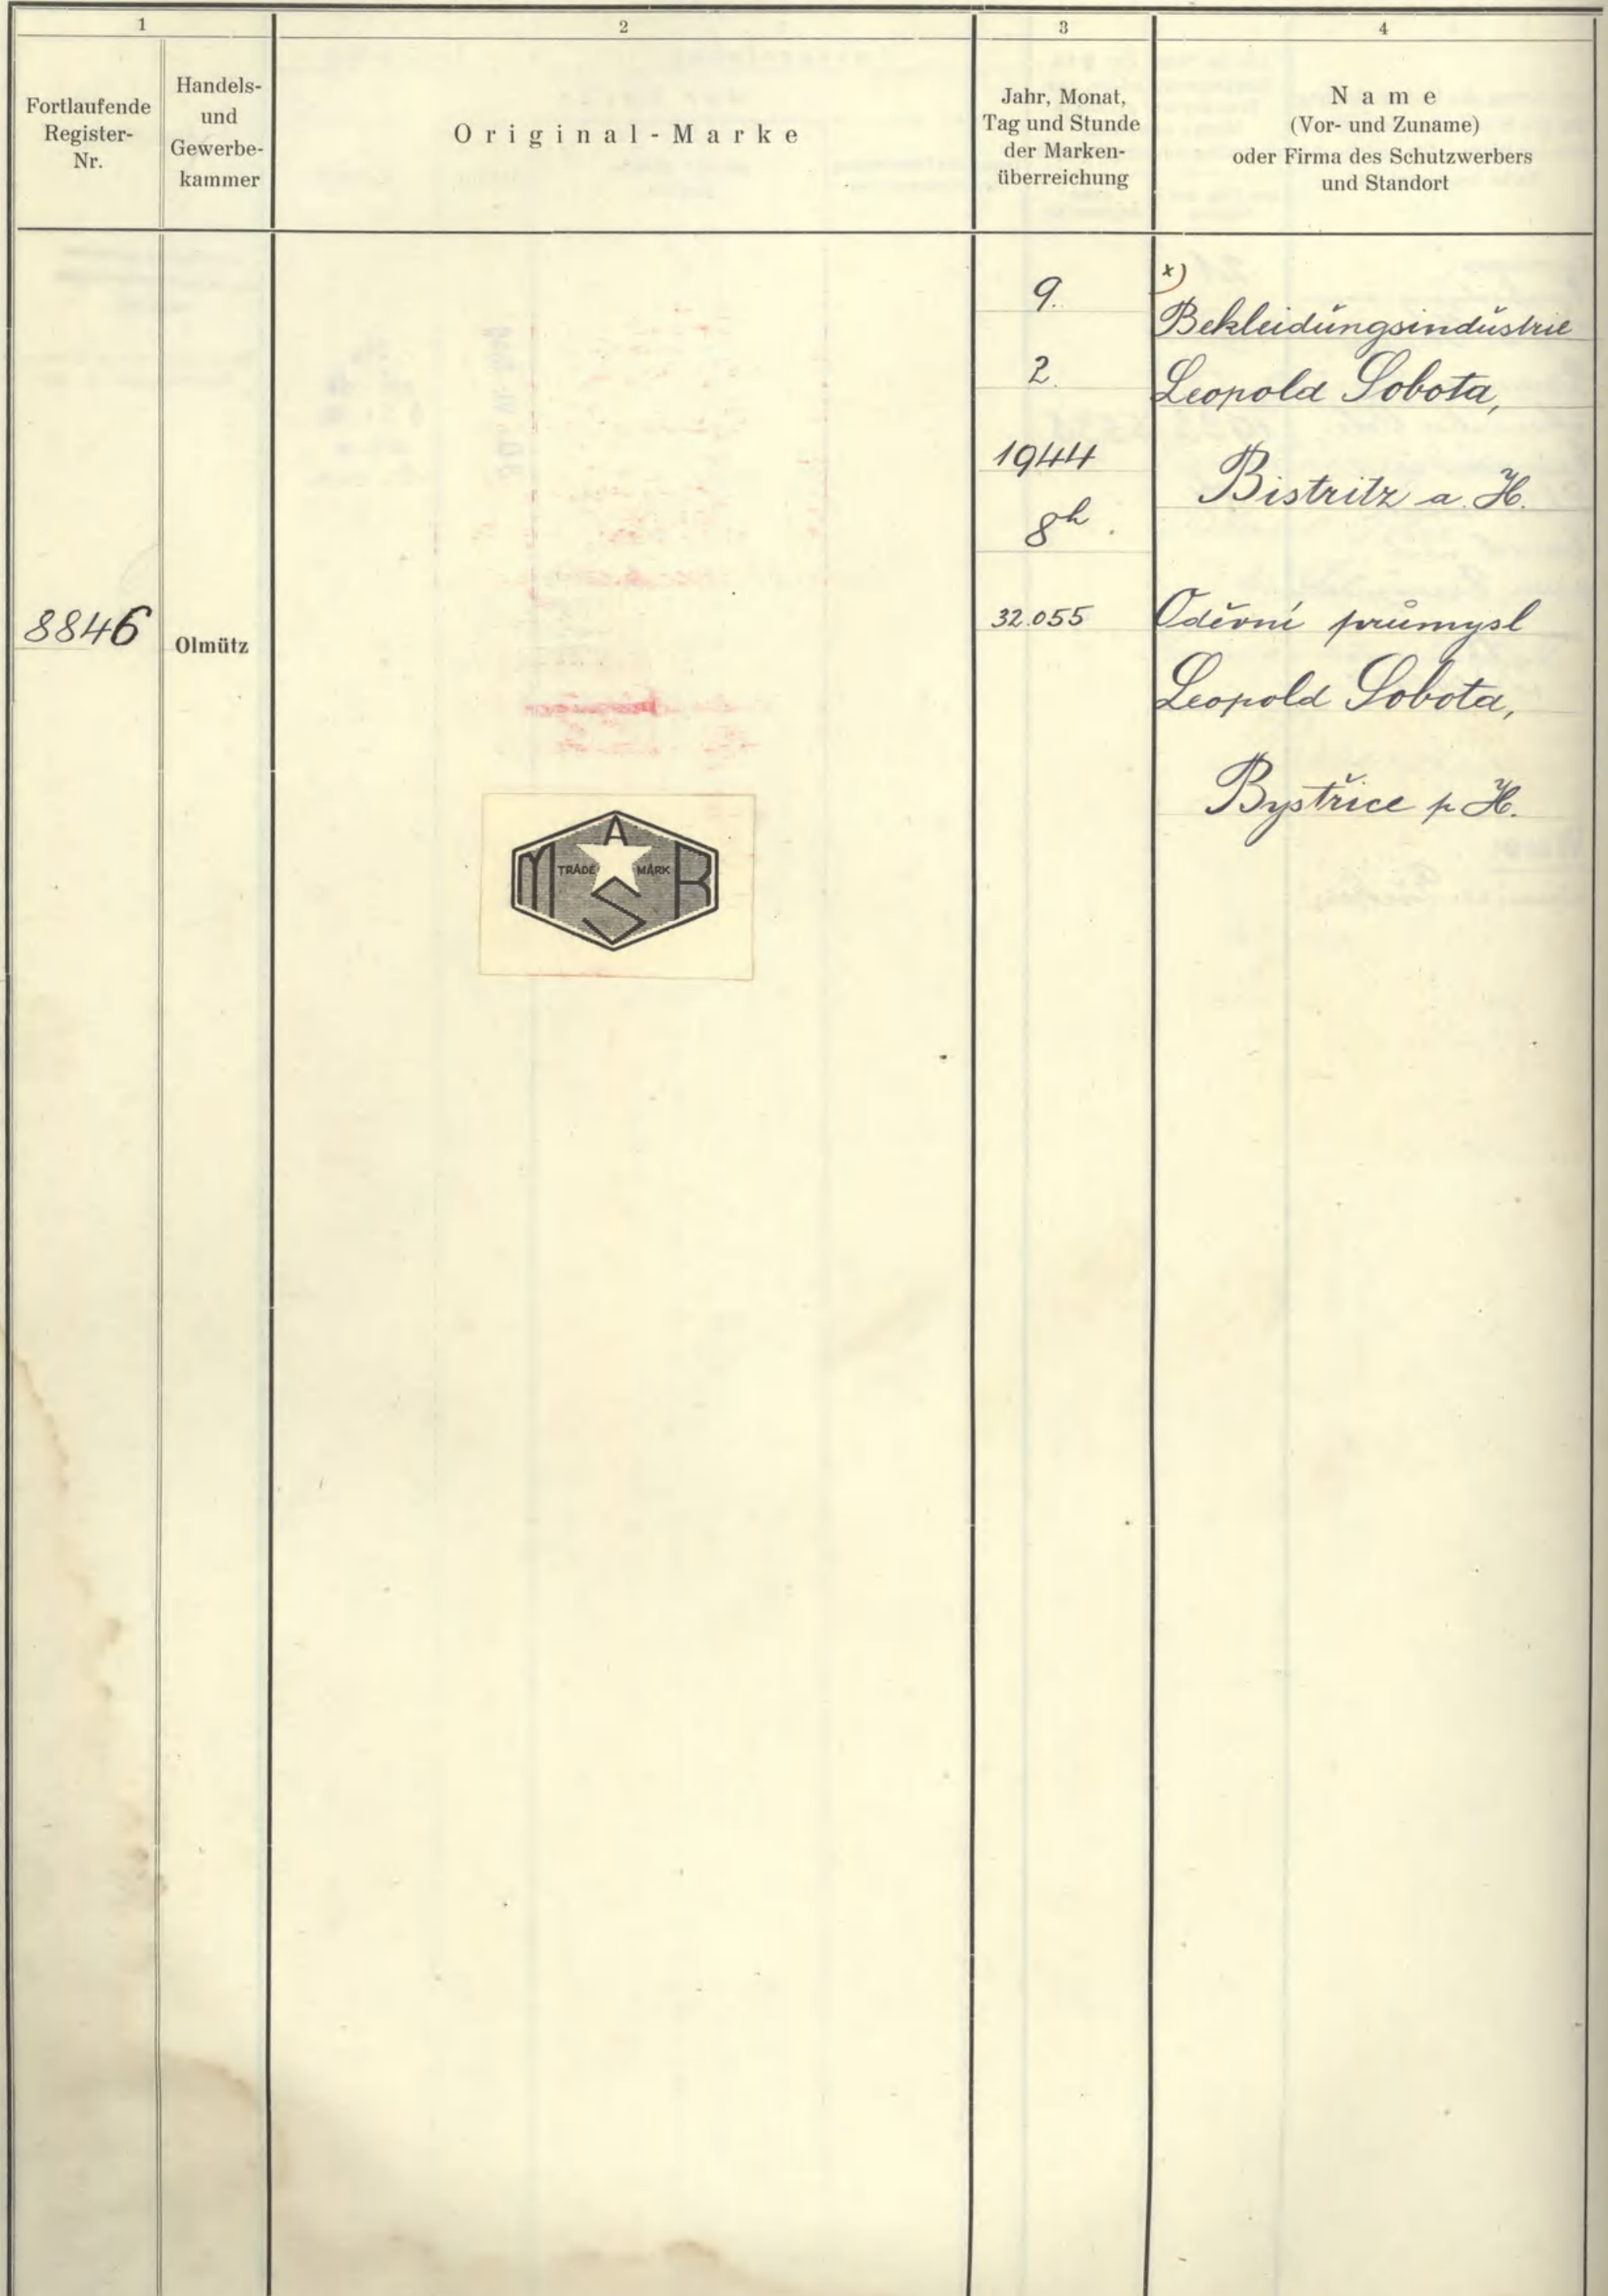 1
2
3
4
Fortlaufende
Register-
Nr.
Handels-
und
Gewerbe-
kammer
Original-Marke
Jahr, Monat,
Tag und Stunde
der Marken-
überreichung
Name
(Vor- und Zuname)
oder Firma des Schutzwerbers
und Standort
8846
Olmütz
A
M TRADE MARK R
S
9.
2.
1944
8h.
32.055
x)
Bekleidungsindustrie
Leopold Sobota,
Bistritz a. H.
Oděvní průmysl
Leopold Sobota,
Bystřice p H.